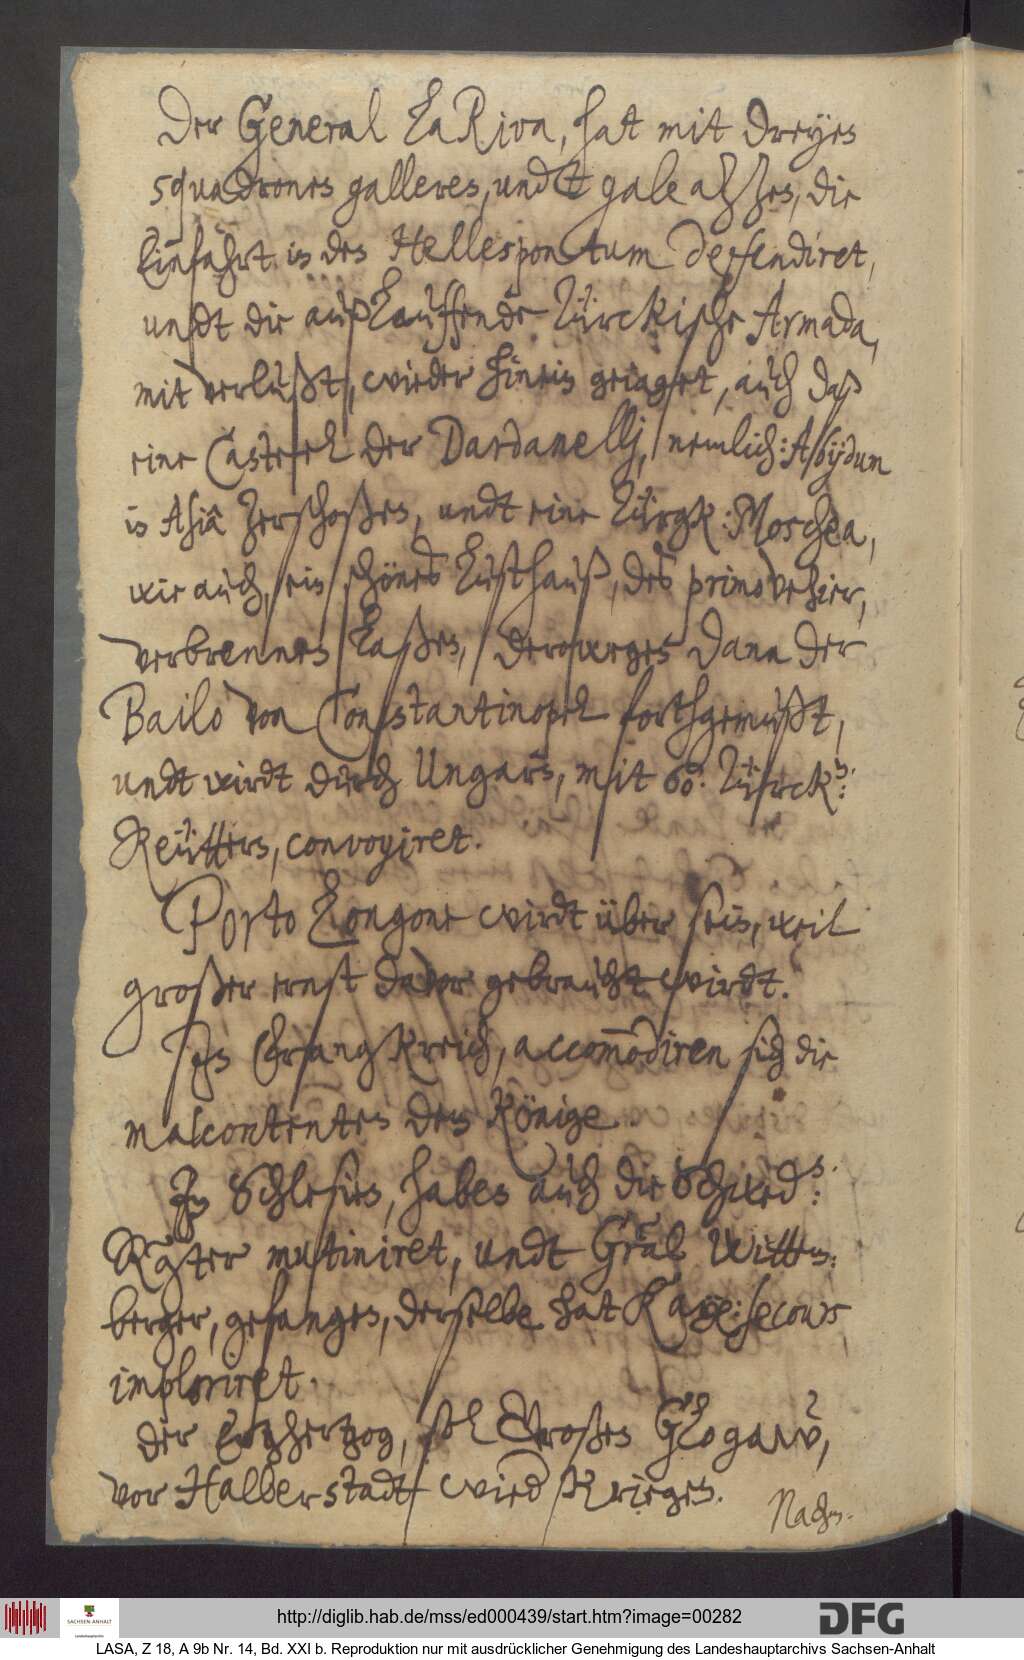 Der General La Riva, hat mit dreyen
squadronen galleren, undt galeazzen, die
Einfahrt in den Hellespontum deffendiret,
undt die außlauffende Türckische Armada,
mit verlußt, wieder hinein gejaget, auch daß
eine Casteel der Dardanellj, nemlich: Abÿdum
in Asiâ zerschoßen, undt eine Türgk: Moschea,
wie auch, ein schönes Lusthauß, des primo Vesier,
verbrennen laßen, derowegen dann der
Bailo von Constantinopel forthgemußt,
undt wirdt durch Ungarn, mit 60. Türcken:
Reüttern, convoyiret.
Porto Longone wirdt über sein, weil
großer ernst davor gebraucht wirdt.
In Frangkreich, accommodiren sich die
malcontenten dem Könige
In Schlesien, haben auch die Schweden:
Räter mutiniret, undt Gral Wittem-
berger, gefangen, derselbe hat Kay: secours
imploriret.
der Ertzhertzog, sol Großen Glogaw,
vor Halberstadt wied kriegen.
Nachm.
http://diglib.hab.de/mss/ed000439/start.htm?image=00282
DFG
SACHSEN-ANHALT
LASA, Z 18, A 9b Nr. 14, Bd. XXI b. Reproduktion nur mit ausdrücklicher Genehmigung des Landeshauptarchivs Sachsen-Anhalt